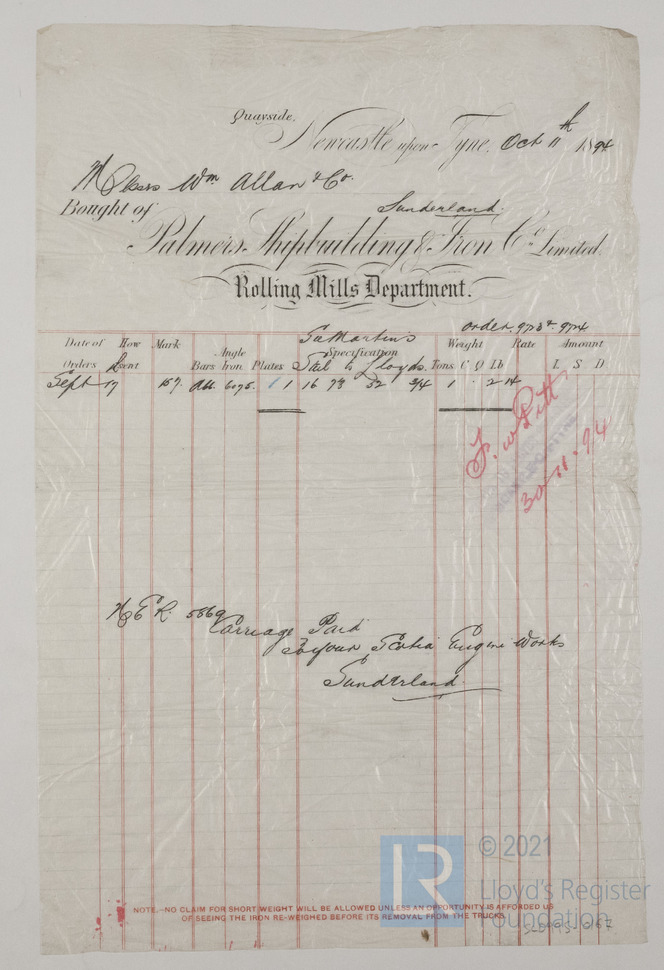 Quayside,
Newcastle upon Tyne, Oct 11th 1894
Messrs Wm Allan & Co.
Sunderland.
Bought of
Palmers Shipbuilding & Iron Co. Limited.
Rolling Mills Department.
order 9723 & 9724
Date of Orders How sent Mark Bars Angle Iron Plates Specification Weight Tons C Q Lb Rate Amount L S D
Sie Martins
Steel to Lloyds.
Sept 17 157 1 1 16 73 52 3/4 1 - 2 14
F. W. Pitt
30-11-94
N E R. 5869
Carriage Paid
To your Scotia Engine Works
Sunderland
NOTE.—NO CLAIM FOR SHORT WEIGHT WILL BE ALLOWED UNLESS AN OPPORTUNITY IS AFFORDED US
OF SEEING THE IRON RE-WEIGHED BEFORE ITS REMOVAL FROM THE TRUCKS.
LR
© 2021
Lloyd's Register
Foundation